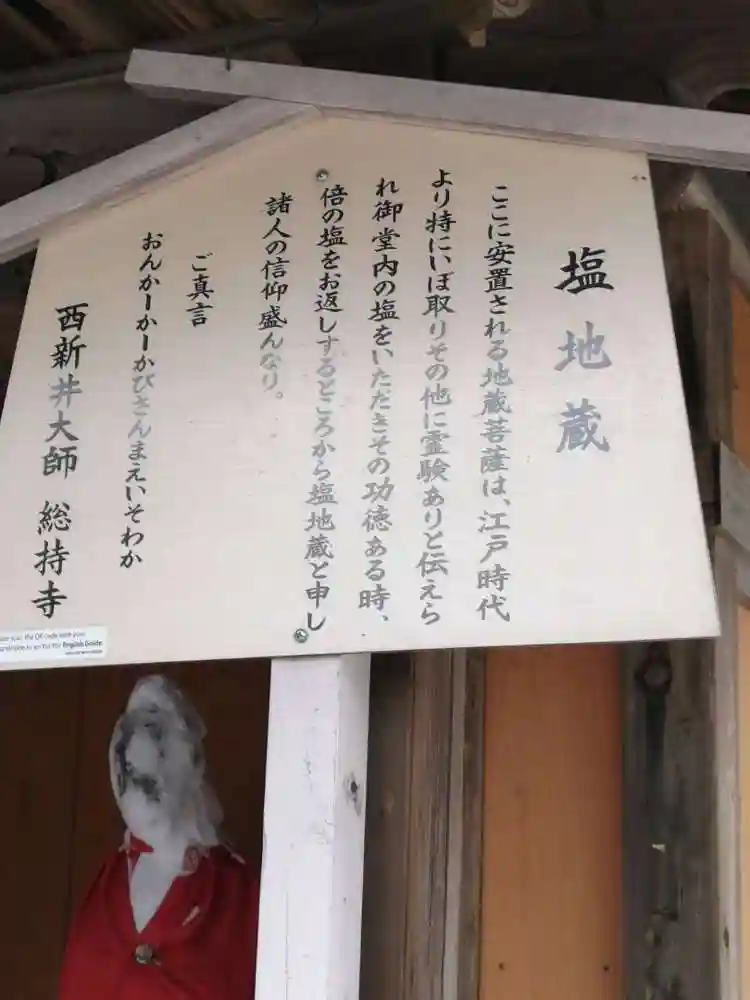 塩地蔵
ここに安置される地蔵菩薩は、江戸時代
より特にいぼ取りその他に霊験ありと伝えら
れ御堂内の塩をいただきその功徳ある時、
倍の塩をお返しするところから塩地蔵と申し
諸人の信仰盛んなり。
ご真言
おんかーかーかびさんまえいそわか
西新井大師 総持寺
English Guide